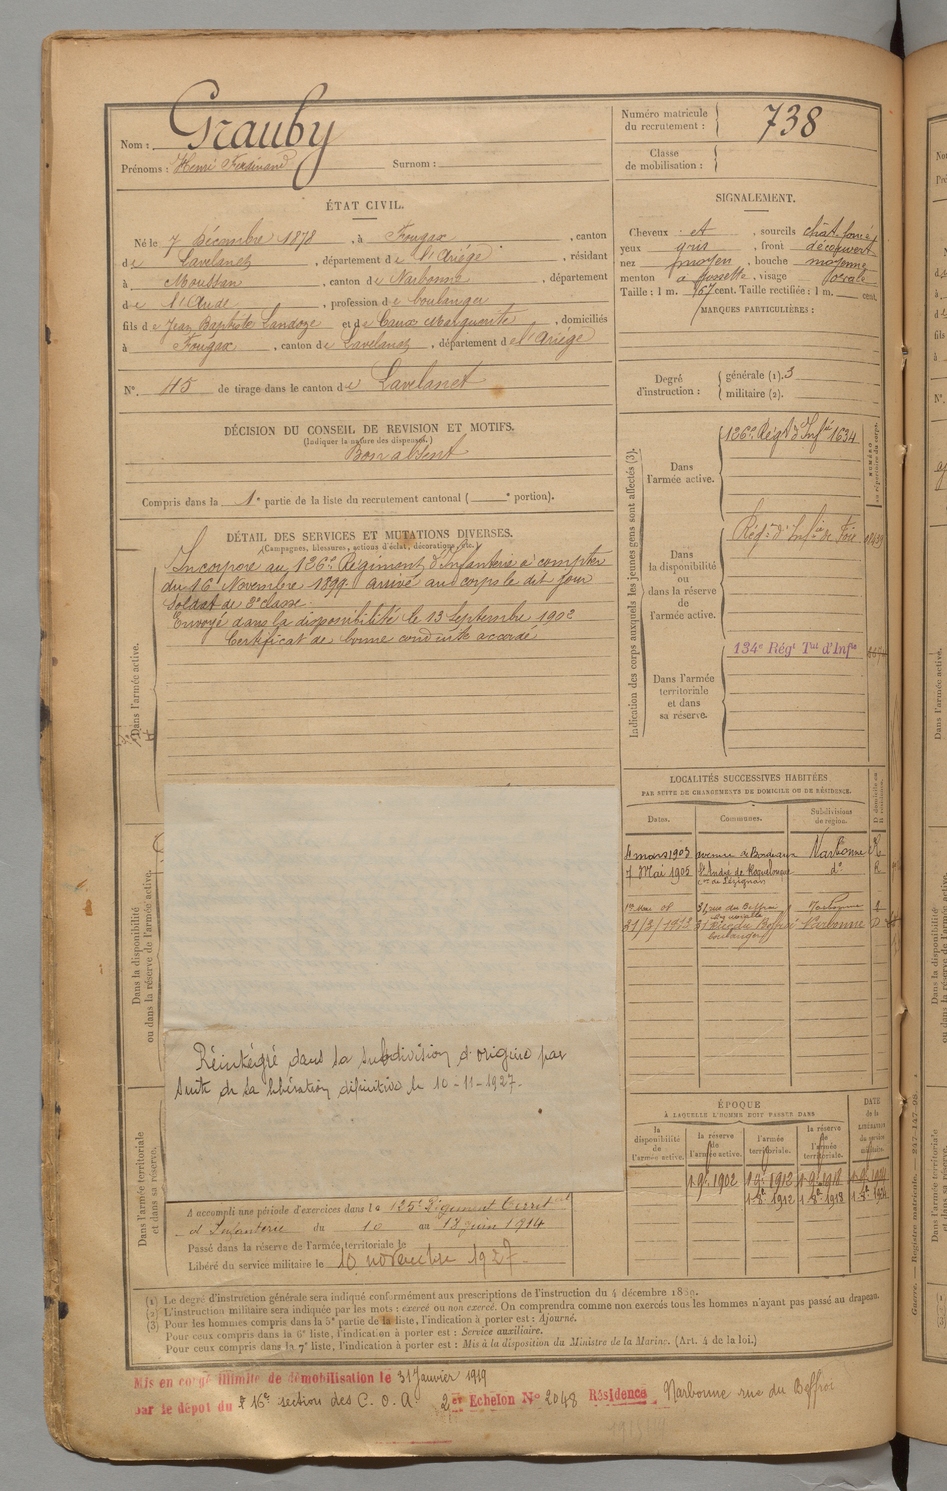 Nom : Grauby
Prénoms : Henri Ferdinand Surnom :
Numéro matricule du recrutement : 738
Classe de mobilisation :
ÉTAT CIVIL.
Né le 7 Décembre 1878, à Fougax, canton
de Lavelanet, département de l'Ariège, résidant
à Moussan, canton de Narbonne, département
de l'Aude, profession de boulanger
fils de Jean Baptiste Landoze et de Caux Marguerite, domiciliés
à Fougax, canton de Lavelanet, département de l'Ariège
N°. 45 de tirage dans le canton de Lavelanet
SIGNALEMENT.
Cheveux et, sourcils chât. foncé,
yeux gris, front découvert
nez moyen, bouche moyenne
menton à fossette, visage
Taille : 1 m. 67 cent. Taille rectifiée : 1 m. cent.
MARQUES PARTICULIÈRES :
Degré d'instruction : générale (1). 3
militaire (2).
DÉCISION DU CONSEIL DE REVISION ET MOTIFS.
(Indiquer la nature des dispenses.)
Bon absent
Compris dans la 1e partie de la liste du recrutement cantonal ( e portion).
DÉTAIL DES SERVICES ET MUTATIONS DIVERSES.
(Campagnes, blessures, actions d'éclat, décorations, etc.)
Incorporé au 126e Régiment d'Infanterie à compter
du 16 Novembre 1899. arrivé au corps le dit jour
Soldat de 2e classe.
Envoyé dans la disponibilité le 13 Septembre 1902
Certificat de bonne conduite accordé
Dans l'armée active.
Dans la disponibilité
ou dans la réserve de l'armée active.
Dans l'armée territoriale
et dans sa réserve.
Réintégré dans la subdivision d'origine par
suite de sa libération définitive le 10-11-1927.
A accompli une période d'exercices dans le 125e Régiment Territ
d'Infanterie du 10 au 18 juin 1914
Passé dans la réserve de l'armée territoriale le
Libéré du service militaire le 10 novembre 1927.
Indication des corps auxquels les jeunes gens sont affectés (3).
NUMÉRO au répertoire du corps.
Dans l'armée active.
126e Régt d'Infie 1634
Dans la disponibilité ou dans la réserve de l'armée active.
Régt d'Infie de Foix
Dans l'armée territoriale et dans sa réserve.
134e Régt Tal d'Infie
LOCALITÉS SUCCESSIVES HABITÉES
PAR SUITE DE CHANGEMENTS DE DOMICILE OU DE RÉSIDENCE.
Dates. Communes. Subdivisions de région. D domicile ou R résidence.
4 mars 1903 avenue de Bordeaux Narbonne R
7 Mai 1905 St André de Roquelongue do R
con de Lézignan
1er Mars 08 31, rue du Beffroi Narbonne
21/2/1913 31 rue du Beffroi Narbonne D
boulanger
ÉPOQUE
À LAQUELLE L'HOMME DOIT PASSER DANS
la disponibilité de l'armée active. la réserve de l'armée active. l'armée territoriale. la réserve de l'armée territoriale. DATE de la LIBÉRATION du service militaire.
1 9bre 1902 1 9bre 1912 1 9bre 1918
1 8bre 1912 1 8bre 1918
(1) Le degré d'instruction générale sera indiqué conformément aux prescriptions de l'instruction du 4 décembre 1889.
(2) L'instruction militaire sera indiquée par les mots : exercé ou non exercé. On comprendra comme non exercés tous les hommes n'ayant pas passé au drapeau.
(3) Pour les hommes compris dans la 5e partie de la liste, l'indication à porter est : Ajourné.
Pour ceux compris dans la 6e liste, l'indication à porter est : Service auxiliaire.
Pour ceux compris dans la 7e liste, l'indication à porter est : Mis à la disposition du Ministre de la Marine. (Art. 4 de la loi.)
Mis en congé illimité de démobilisation le 31 Janvier 1919
par le dépôt du 16e section des C. O. A. 2er Echelon N° 2048 Résidence Narbonne rue du Beffroi
Guerre. — Registre matricule. — 247-147-98.